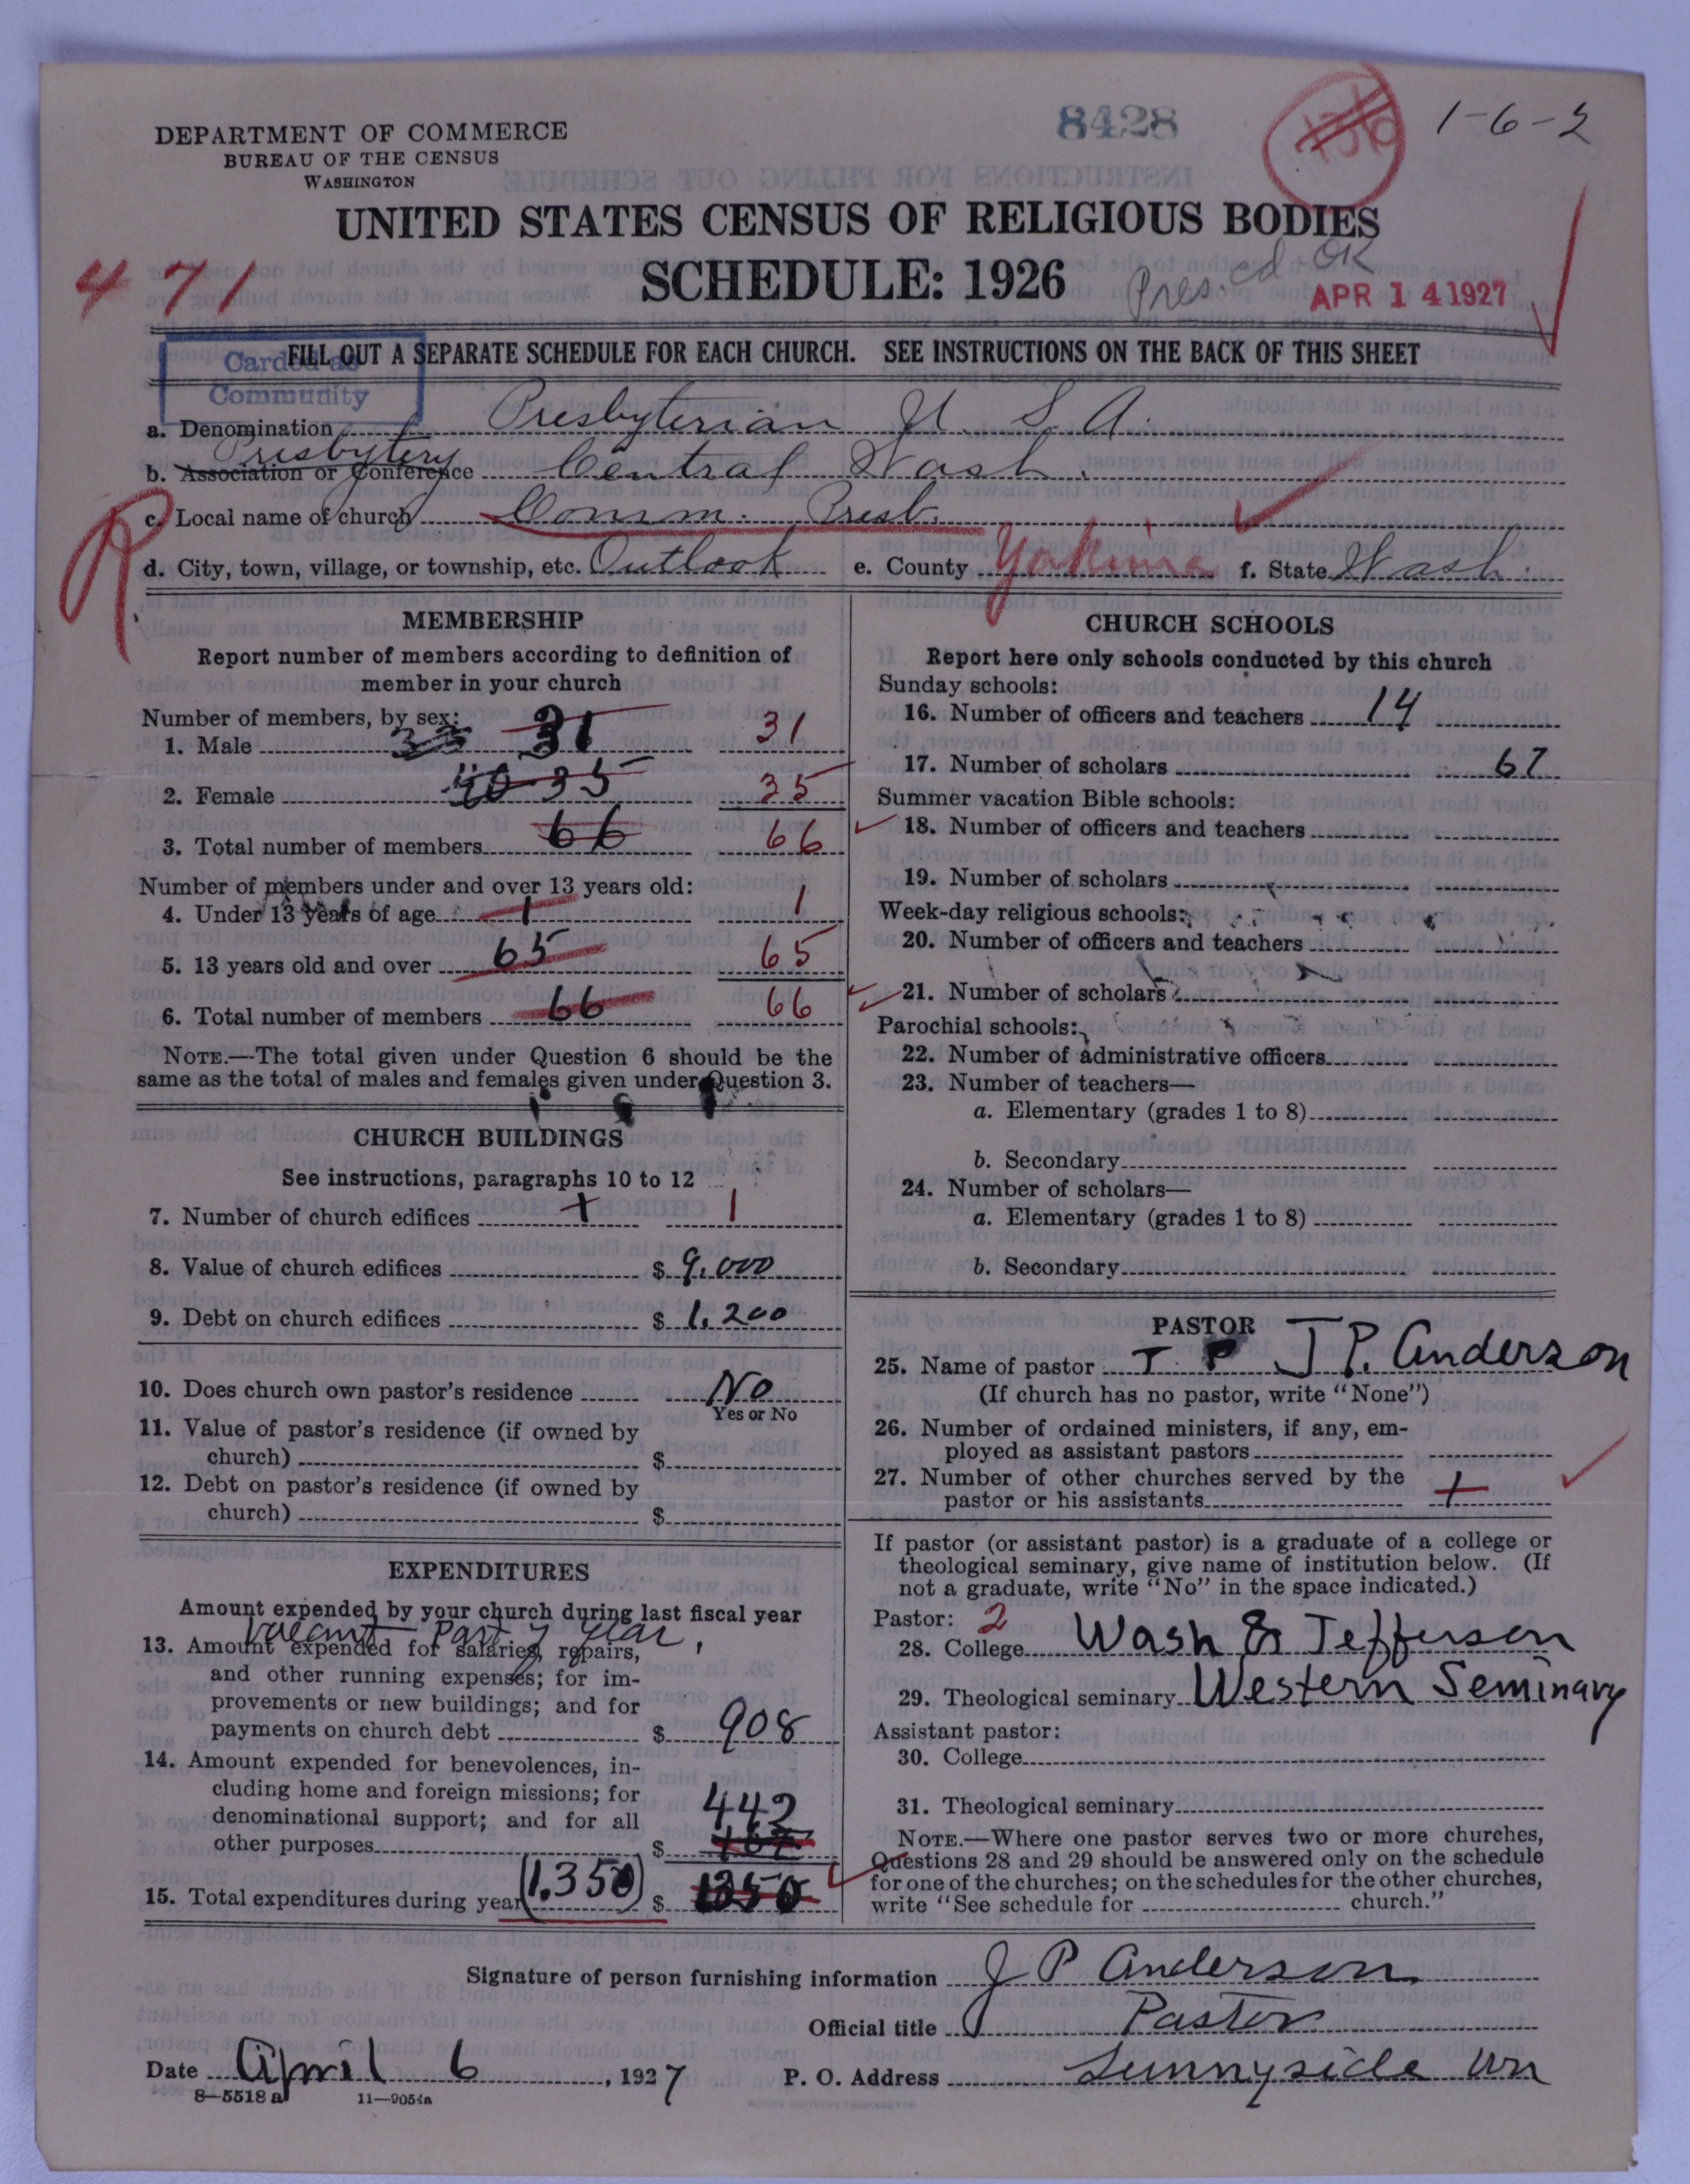 8428
1-6-2
DEPARTMENT OF COMMERCE
BUREAU OF THE CENSUS
WASHINGTON
UNITED STATES CENSUS OF RELIGIOUS BODIES
SCHEDULE: 1926
471
Pres. cd OK
APR 14 1927
FILL OUT A SEPARATE SCHEDULE FOR EACH CHURCH. SEE INSTRUCTIONS ON THE BACK OF THIS SHEET
Carded as
Community
a. Denomination Presbyterian U. S. A.
Presbytery
b. Association or Conference Central Wash.
R
c. Local name of church Comm. Presb.
d. City, town, village, or township, etc. Outlook e. County Yakima f. State Wash.
MEMBERSHIP
Report number of members according to definition of
member in your church
Number of members, by sex:
1. Male 33 31 31
2. Female 40 35 35
3. Total number of members 66 66
Number of members under and over 13 years old:
4. Under 13 years of age 1 1
5. 13 years old and over 65 65
6. Total number of members 66 66
NOTE.—The total given under Question 6 should be the
same as the total of males and females given under Question 3.
CHURCH BUILDINGS
See instructions, paragraphs 10 to 12
7. Number of church edifices 1 1
8. Value of church edifices $ 9,000
9. Debt on church edifices $ 1,200
10. Does church own pastor's residence No
Yes or No
11. Value of pastor's residence (if owned by
church) $
12. Debt on pastor's residence (if owned by
church) $
EXPENDITURES
Amount expended by your church during last fiscal year
Vacant Part of year,
13. Amount expended for salaries, repairs,
and other running expenses; for im-
provements or new buildings; and for
payments on church debt $ 908
14. Amount expended for benevolences, in-
cluding home and foreign missions; for
denominational support; and for all
442
other purposes $
15. Total expenditures during year (1.350) $ 1350
CHURCH SCHOOLS
Report here only schools conducted by this church
Sunday schools:
16. Number of officers and teachers 14
17. Number of scholars 67
Summer vacation Bible schools:
18. Number of officers and teachers
19. Number of scholars
Week-day religious schools:
20. Number of officers and teachers
21. Number of scholars
Parochial schools:
22. Number of administrative officers
23. Number of teachers—
a. Elementary (grades 1 to 8)
b. Secondary
24. Number of scholars—
a. Elementary (grades 1 to 8)
b. Secondary
PASTOR
25. Name of pastor J P J P. Anderson
(If church has no pastor, write "None")
26. Number of ordained ministers, if any, em-
ployed as assistant pastors
27. Number of other churches served by the
pastor or his assistants 1
If pastor (or assistant pastor) is a graduate of a college or
theological seminary, give name of institution below. (If
not a graduate, write "No" in the space indicated.)
Pastor: 2
28. College Wash & Jefferson
29. Theological seminary Western Seminary
Assistant pastor:
30. College
31. Theological seminary
NOTE.—Where one pastor serves two or more churches,
Questions 28 and 29 should be answered only on the schedule
for one of the churches; on the schedules for the other churches,
write "See schedule for church."
Signature of person furnishing information J P Anderson
Official title Pastor
Date April 6, 1927 P. O. Address Sunnyside Wn
8—5518 a 11—9054a